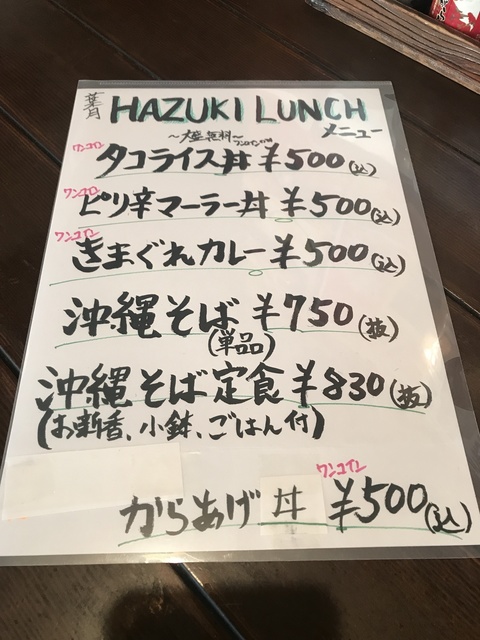 葉月
HAZUKI LUNCH
メニュー
～大盛無料～
ワンコイン
タコライス丼 ¥500(込)
ワンコイン
ピリ辛マーラー丼 ¥500(込)
ワンコイン
きまぐれカレー ¥500(込)
沖縄そば ¥750(抜)
(単品)
沖縄そば定食 ¥830(抜)
(お新香、小鉢、ごはん付)
ワンコイン
からあげ丼 ¥500(込)